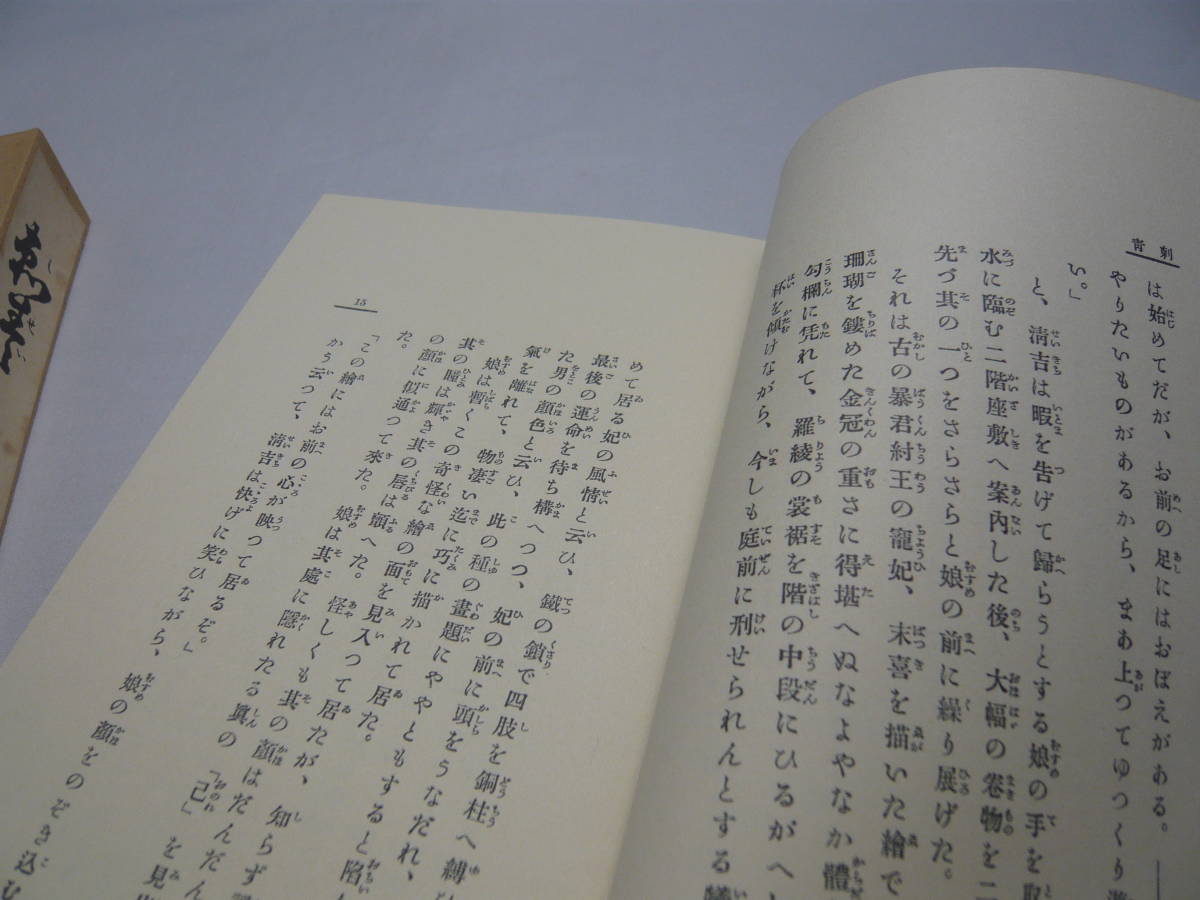 刺青
は始めてだが、お前の足にはおぼえがある。――
やりたいものがあるから、まあ上つてゆつくり
い。」
と、淸吉は暇を告げて歸らうとする娘の手を取
水に臨む二階座敷へ案內した後、大幅の卷物を二
先づ其の一つをさらさらと娘の前に繰り展げた。
それは古の暴君紂王の寵妃、末喜を描いた繪で
珊瑚を鏤めた金冠の重さに得堪へぬなよやかな體
勾欄に凭れて、羅綾の裳裾を階の中段にひるがへし
杯を傾けながら、今しも庭前に刑せられんとする犧
15
めて居る妃の風情と云ひ、鐵の鎖で四肢を銅柱へ縛
最後の運命を待ち構へつつ、妃の前に頭をうなだれ、
た男の顏色と云ひ、此の種の畫題にややともすると陷
氣を離れて、物凄い迄に巧に描かれて居た。
娘は暫くこの奇怪な繪の面を見入つて居たが、知らず
其の瞳は輝き其の唇は顫へた。怪しくも其の顏はだんだん
の顏に似通つて來た。娘は其處に隱れたる眞の「己」を見
た。
「この繪にはお前の心が映つて居るぞ。」
かう云つて、淸吉は快げに笑ひながら、娘の顏をのぞき込む